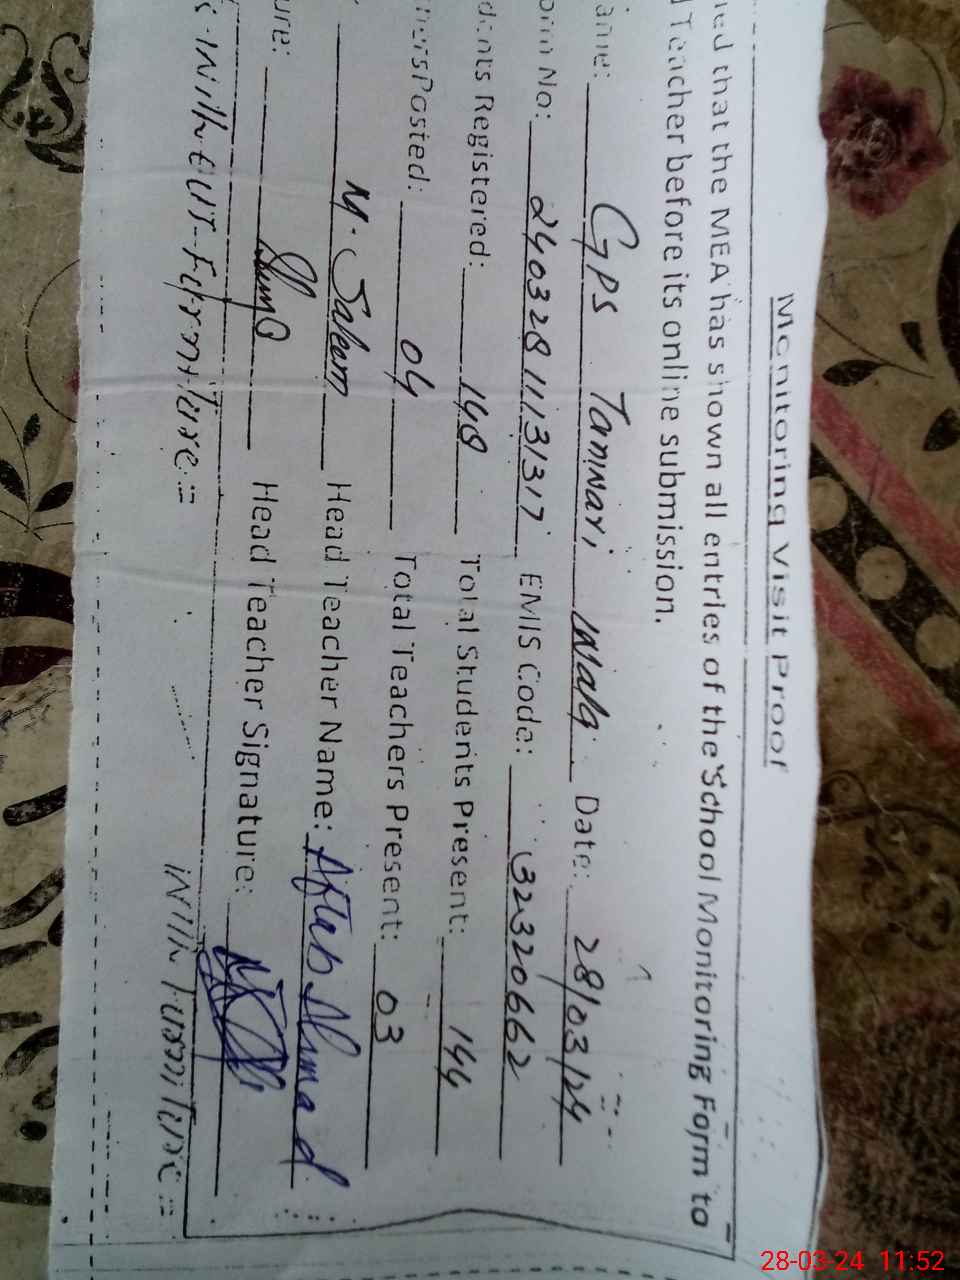 Monitoring Visit Proof
ied that the MEA has shown all entries of the School Monitoring Form to
Teacher before its online submission.
ame: GPS Tannari Wala Date: 28/03/24
orm No: 24032811131317 EMIS Code: 32320662
dents Registered: 148 Total Students Present: 144
hersPosted: 04 Total Teachers Present: 03
M. Saleem Head Teacher Name: Aftab Ahmad
ure: Head Teacher Signature:
without Furniture:= With Furniture:=
28-03-24 11:52